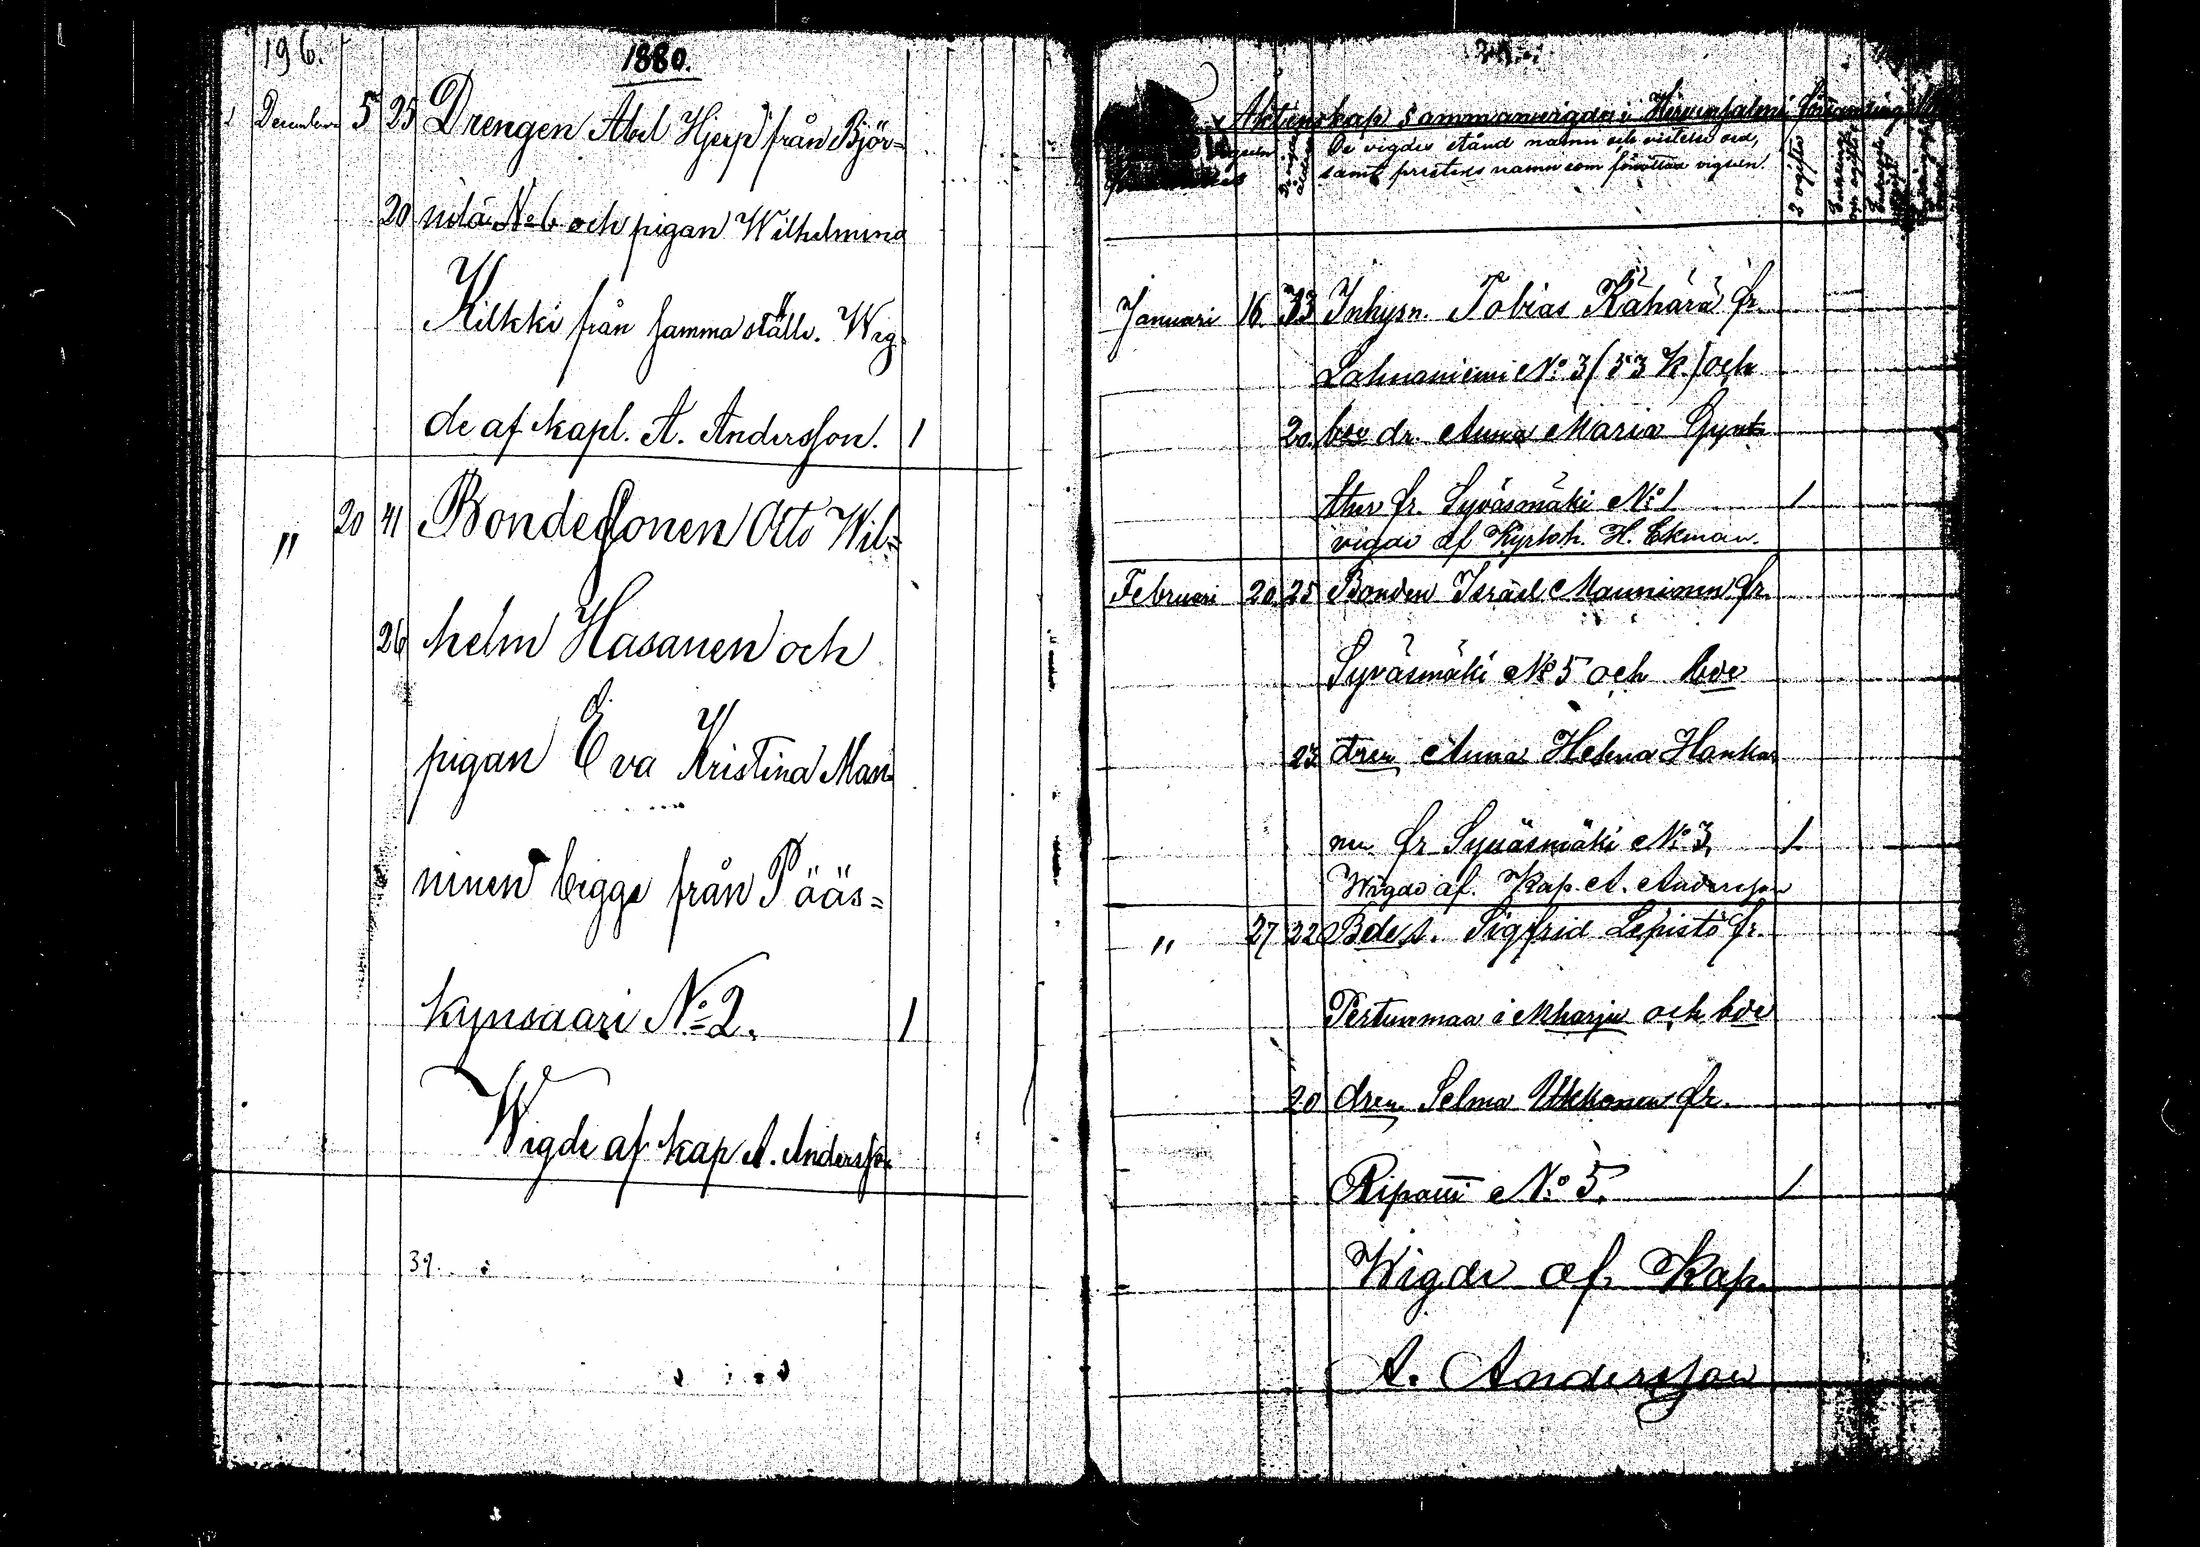 196.
1880.
December 5 25 Drengen Abel Hjerp från Björ=
20 nilä No 6 och pigan Wilhelmina
Kilkki från samma ställe. Wig
de af kapl. A. Andersson. 1
" 20 41 Bondesonen Otto Wil=
26 helm Hasanen och
pigan Eva Kristina Man
ninen begge från Pääs=
kynsaari No 2. 1
Wigde af kap A. Andersson
39.
Äktenskap sammanvigda i Hirvensalmi församling
De vigdes stånd namn och vistelse ord,
samt prestens namn som förrättat vigseln.
Januari 16. 33 Inhysn. Tobias Kähärä fr.
Lahnaniemi No 3 (53 K.) och
20. bde dr. Anna Maria Gynt
ther fr. Syväsmäki No 1 1
vigde af Kyrkoh. H. Ekman.
Februari 20. 25 Bonden Israel Mauninen fr.
Syväsmäki No 5 och bde
23 dren Anna Helena Hanka
nen fr Syväsmäki No 3, 1
Wigde af. Kap. A. Andersson
" 27 22 Bde s. Sigfrid Lepistö fr.
Pertunmaa i Mharju och bde
20 dren Selma Ukkonen fr.
Ripatti No 5. 1
Wigde af Kap.
A. Andersson